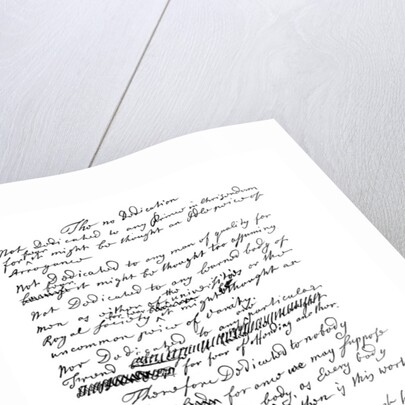 The no Dedication
Not Dedicated to any Prince in Christendom
for fear it might be thought an Idle piece of
Arrogance
Not Dedicated to any man of quality for
fear it might be thought too assuming
Not Dedicated to any learned body of
men as either of the Universities or the
Royal Society it might be thought an
uncommon piece of Vanity.
Nor Dedicated to any particular
Friend for fear of offending another.
Therefore Dedicated to nobody
for once we may suppose
body, as Every body
then is this work